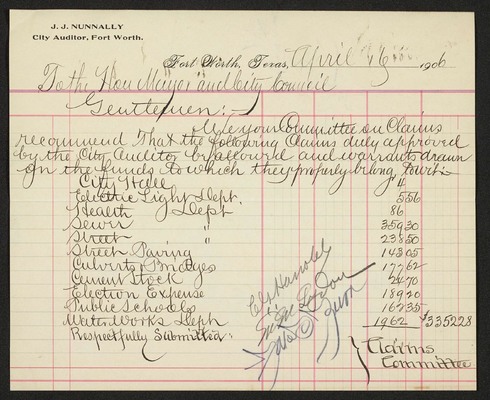 J. J. NUNNALLY
City Auditor, Fort Worth.
Fort Worth, Texas, April 16 1906
To the Hon Mayor and City Council
Gentlemen:-
We your Committee on Claims
recommend that the following Claims duly approved
by the City Auditor be allowed and warrants drawn
on the funds to which they properly belong towit:-
City Hall 4
Electric Light Dept. 556
Health Dept 86
Sewer " 35930
Street " 23850
Street Paving 14305
Culverts & Bridges 17762
Cement Stock 2470
Election Expense 18920
Public Schools 16235
Water Works Dept 1962 $335228
Respectfully Submitted:
Claims
Committee